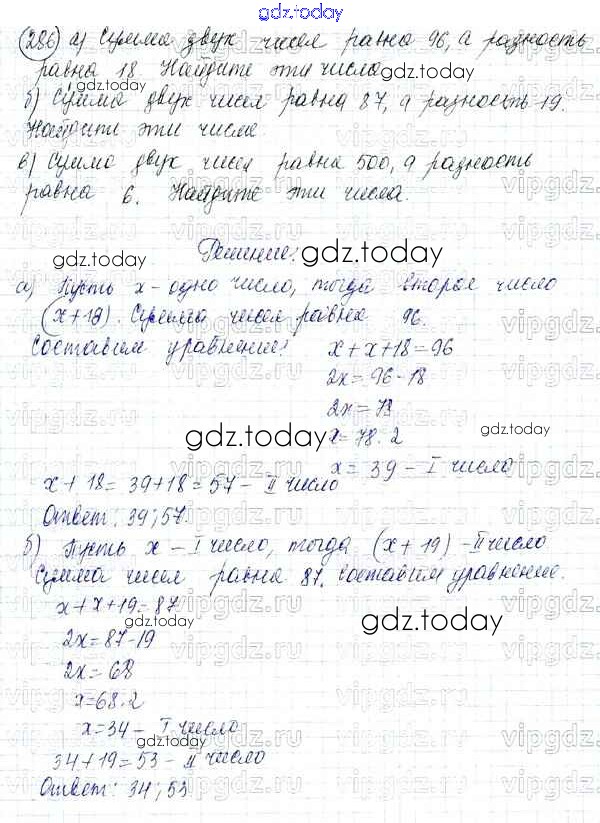 gdz.today
286 а) Сумма двух чисел равна 96, а разность
равна 18. Найдите эти числа.
gdz.today
б) Сумма двух чисел равна 87, а разность 19.
Найдите эти числа.
в) Сумма двух чисел равна 500, а разность
равна 6. Найдите эти числа.
vipgdz.ru
Решение:
gdz.today
а) Пусть x - одно число, тогда второе число
(x+18). Сумма чисел равна 96.
Составим уравнение:
x+x+18=96
2x=96-18
2x=78
gdz.today
x=78:2
x=39 - I число
x+18=39+18=57 - II число
Ответ: 39; 57.
б) Пусть x - I число, тогда (x+19) - II число
Сумма чисел равна 87. Составим уравнение.
x+x+19=87
gdz.today
2x=87-19
2x=68
x=68:2
x=34 - I число
34+19=53 - II число
Ответ: 34; 53